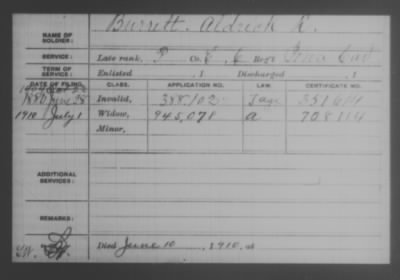 NAME OF SOLDIER: Burrett, Aldrich
SERVICE: Late rank, P Co. E, 6 Reg't Iowa Cav
TERM OF SERVICE: Enlisted , 1 Discharged , 1
DATE OF FILING. CLASS. APPLICATION NO. LAW. CERTIFICATE NO.
1880 June 28 Invalid, 388,102 351614
1910 July 1 Widow, 945,078 a 708114
Minor,
ADDITIONAL SERVICES:
REMARKS:
Died June 10, 1910, at